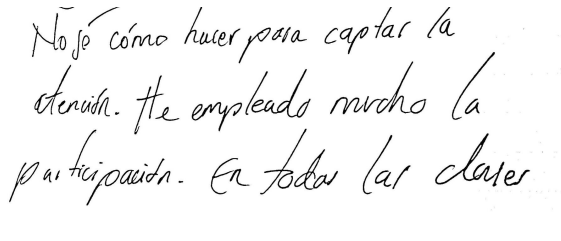 No sé cómo hacer para captar la
atención. He empleado mucho la
participación. En todas las clases